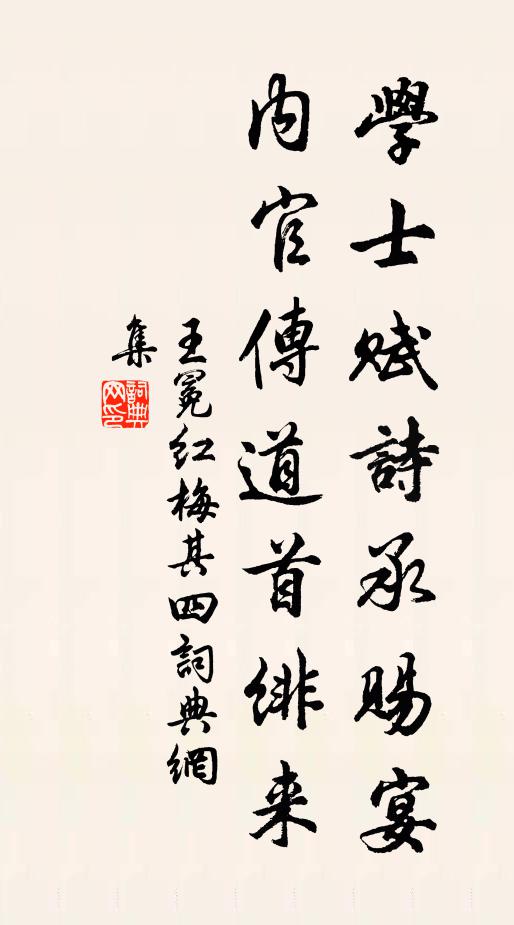 學士賦詩承賜宴
內官傳道首緋来
王冕紅梅其四詞典網
集
詞典
网印